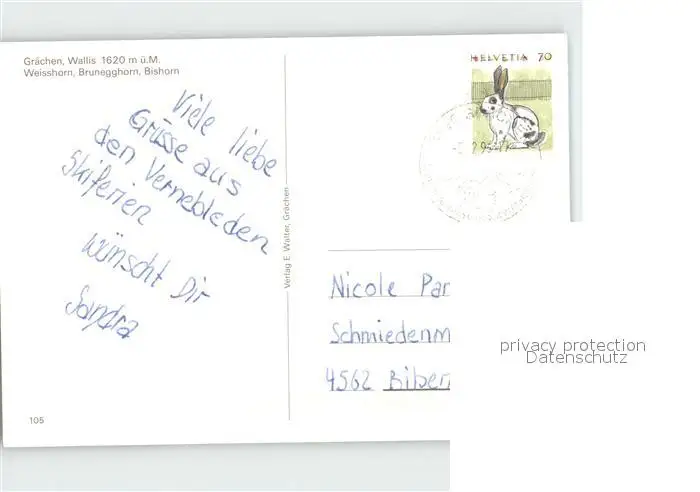 Grächen, Wallis 1620 m ü.M.
Weisshorn, Brunegghorn, Bishorn
HELVETIA 70
Viele liebe
Grüsse aus
den Vernebleden
Skiferien
wünscht Dir
Sandra
Verlag E. Walter, Grächen
Nicole Par
Schmiedenm
4562 Biber
privacy protection
Datenschutz
105